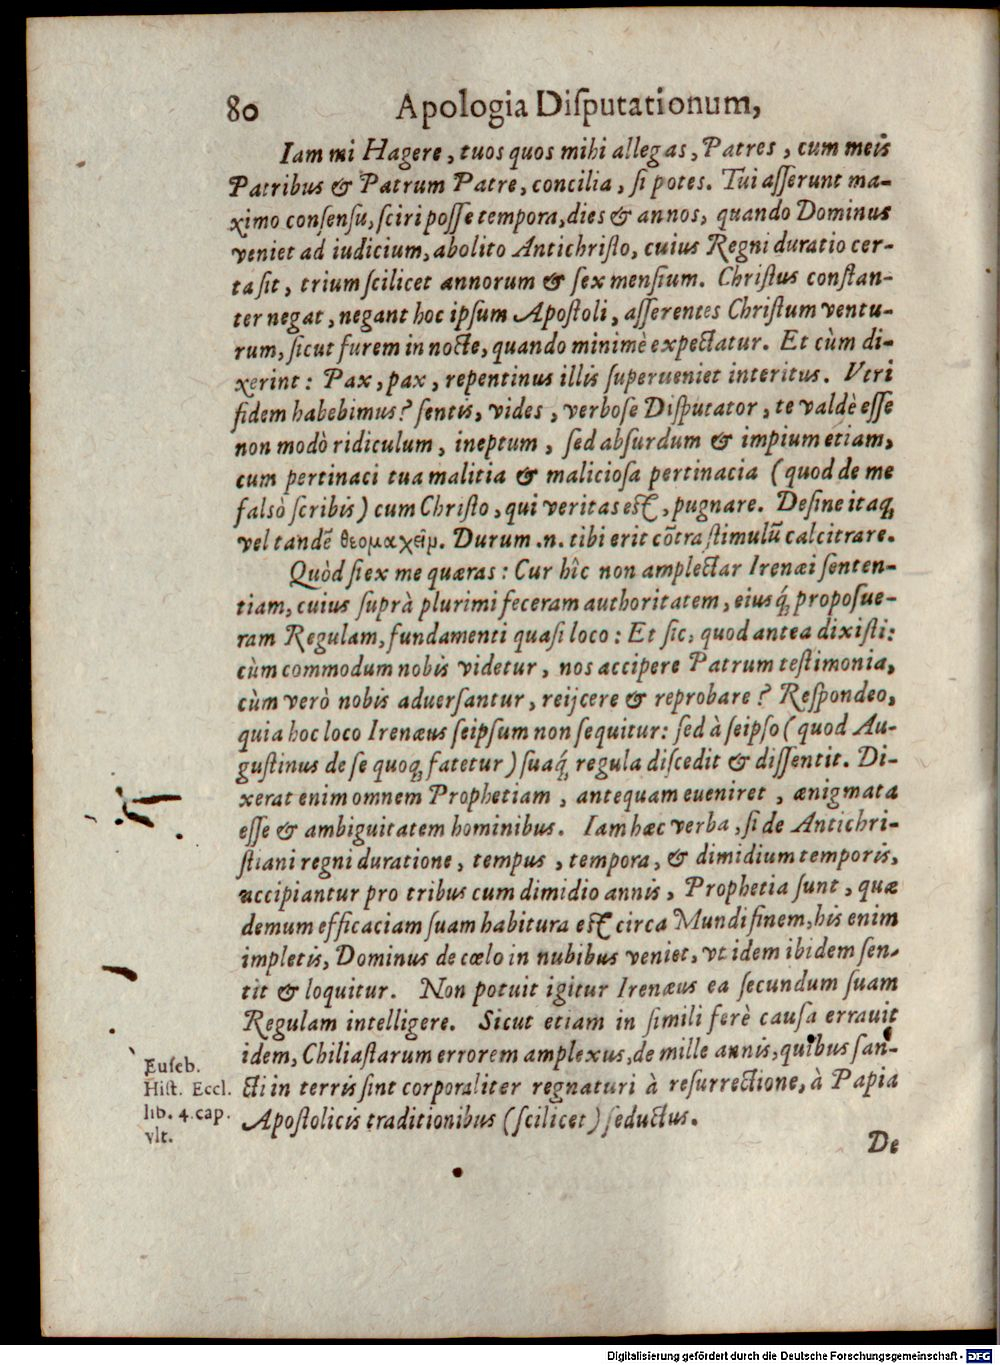 80 Apologia Diſputationum,
Iam mi Hagere, tuos quos mihi allegas, Patres, cum meis
Patribus & Patrum Patre, concilia, ſi potes. Tui aſſerunt ma-
ximo conſenſu, ſciri poſſe tempora, dies & annos, quando Dominus
veniet ad iudicium, abolito Antichriſto, cuius Regni duratio cer-
ta ſit, trium ſcilicet annorum & ſex menſium. Chriſtus conſtan-
ter negat, negant hoc ipſum Apoſtoli, aſſerentes Chriſtum ventu-
rum, ſicut furem in nocte, quando minimè expectatur. Et cùm di-
xerint: Pax, pax, repentinus illis ſuperueniet interitus. Vtri
fidem habebimus? ſentis, vides, verboſe Diſputator, te valdè eſſe
non modò ridiculum, ineptum, ſed abſurdum & impium etiam,
cum pertinaci tua malitia & malicioſa pertinacia (quod de me
falsò ſcribis) cum Chriſto, qui veritas eſt, pugnare. Deſine itaq;
vel tandē θεομαχεῖν. Durum .n. tibi erit cōtra ſtimulū calcitrare.
Quòd ſi ex me quæras: Cur hîc non amplectar Irenæi ſenten-
tiam, cuius ſuprà plurimi feceram authoritatem, eiusq́; propoſue-
ram Regulam, fundamenti quaſi loco: Et ſic, quod antea dixiſti:
cùm commodum nobis videtur, nos accipere Patrum teſtimonia,
cùm verò nobis aduerſantur, reijcere & reprobare? Reſpondeo,
quia hoc loco Irenæus ſeipſum non ſequitur: ſed à ſeipſo (quod Au-
guſtinus de ſe quoq; fatetur) ſuaq́; regula diſcedit & diſſentit. Di-
xerat enim omnem Prophetiam, antequam eueniret, ænigmata
eſſe & ambiguitatem hominibus. Iam hæc verba, ſi de Antichri-
ſtiani regni duratione, tempus, tempora, & dimidium temporis,
accipiantur pro tribus cum dimidio annis, Prophetia ſunt, quæ
demum efficaciam ſuam habitura eſt circa Mundi finem, his enim
impletis, Dominus de cœlo in nubibus veniet, vt idem ibidem ſen-
tit & loquitur. Non potuit igitur Irenæus ea ſecundum ſuam
Regulam intelligere. Sicut etiam in ſimili ferè cauſa errauit
idem, Chiliaſtarum errorem amplexus, de mille annis, quibus ſan-
cti in terris ſint corporaliter regnaturi à reſurrectione, à Papia
Apoſtolicis traditionibus (ſcilicet) ſeductus.
Euſeb.
Hiſt. Eccl.
lib. 4. cap.
vlt.
De
Digitalisierung gefördert durch die Deutsche Forschungsgemeinschaft - DFG